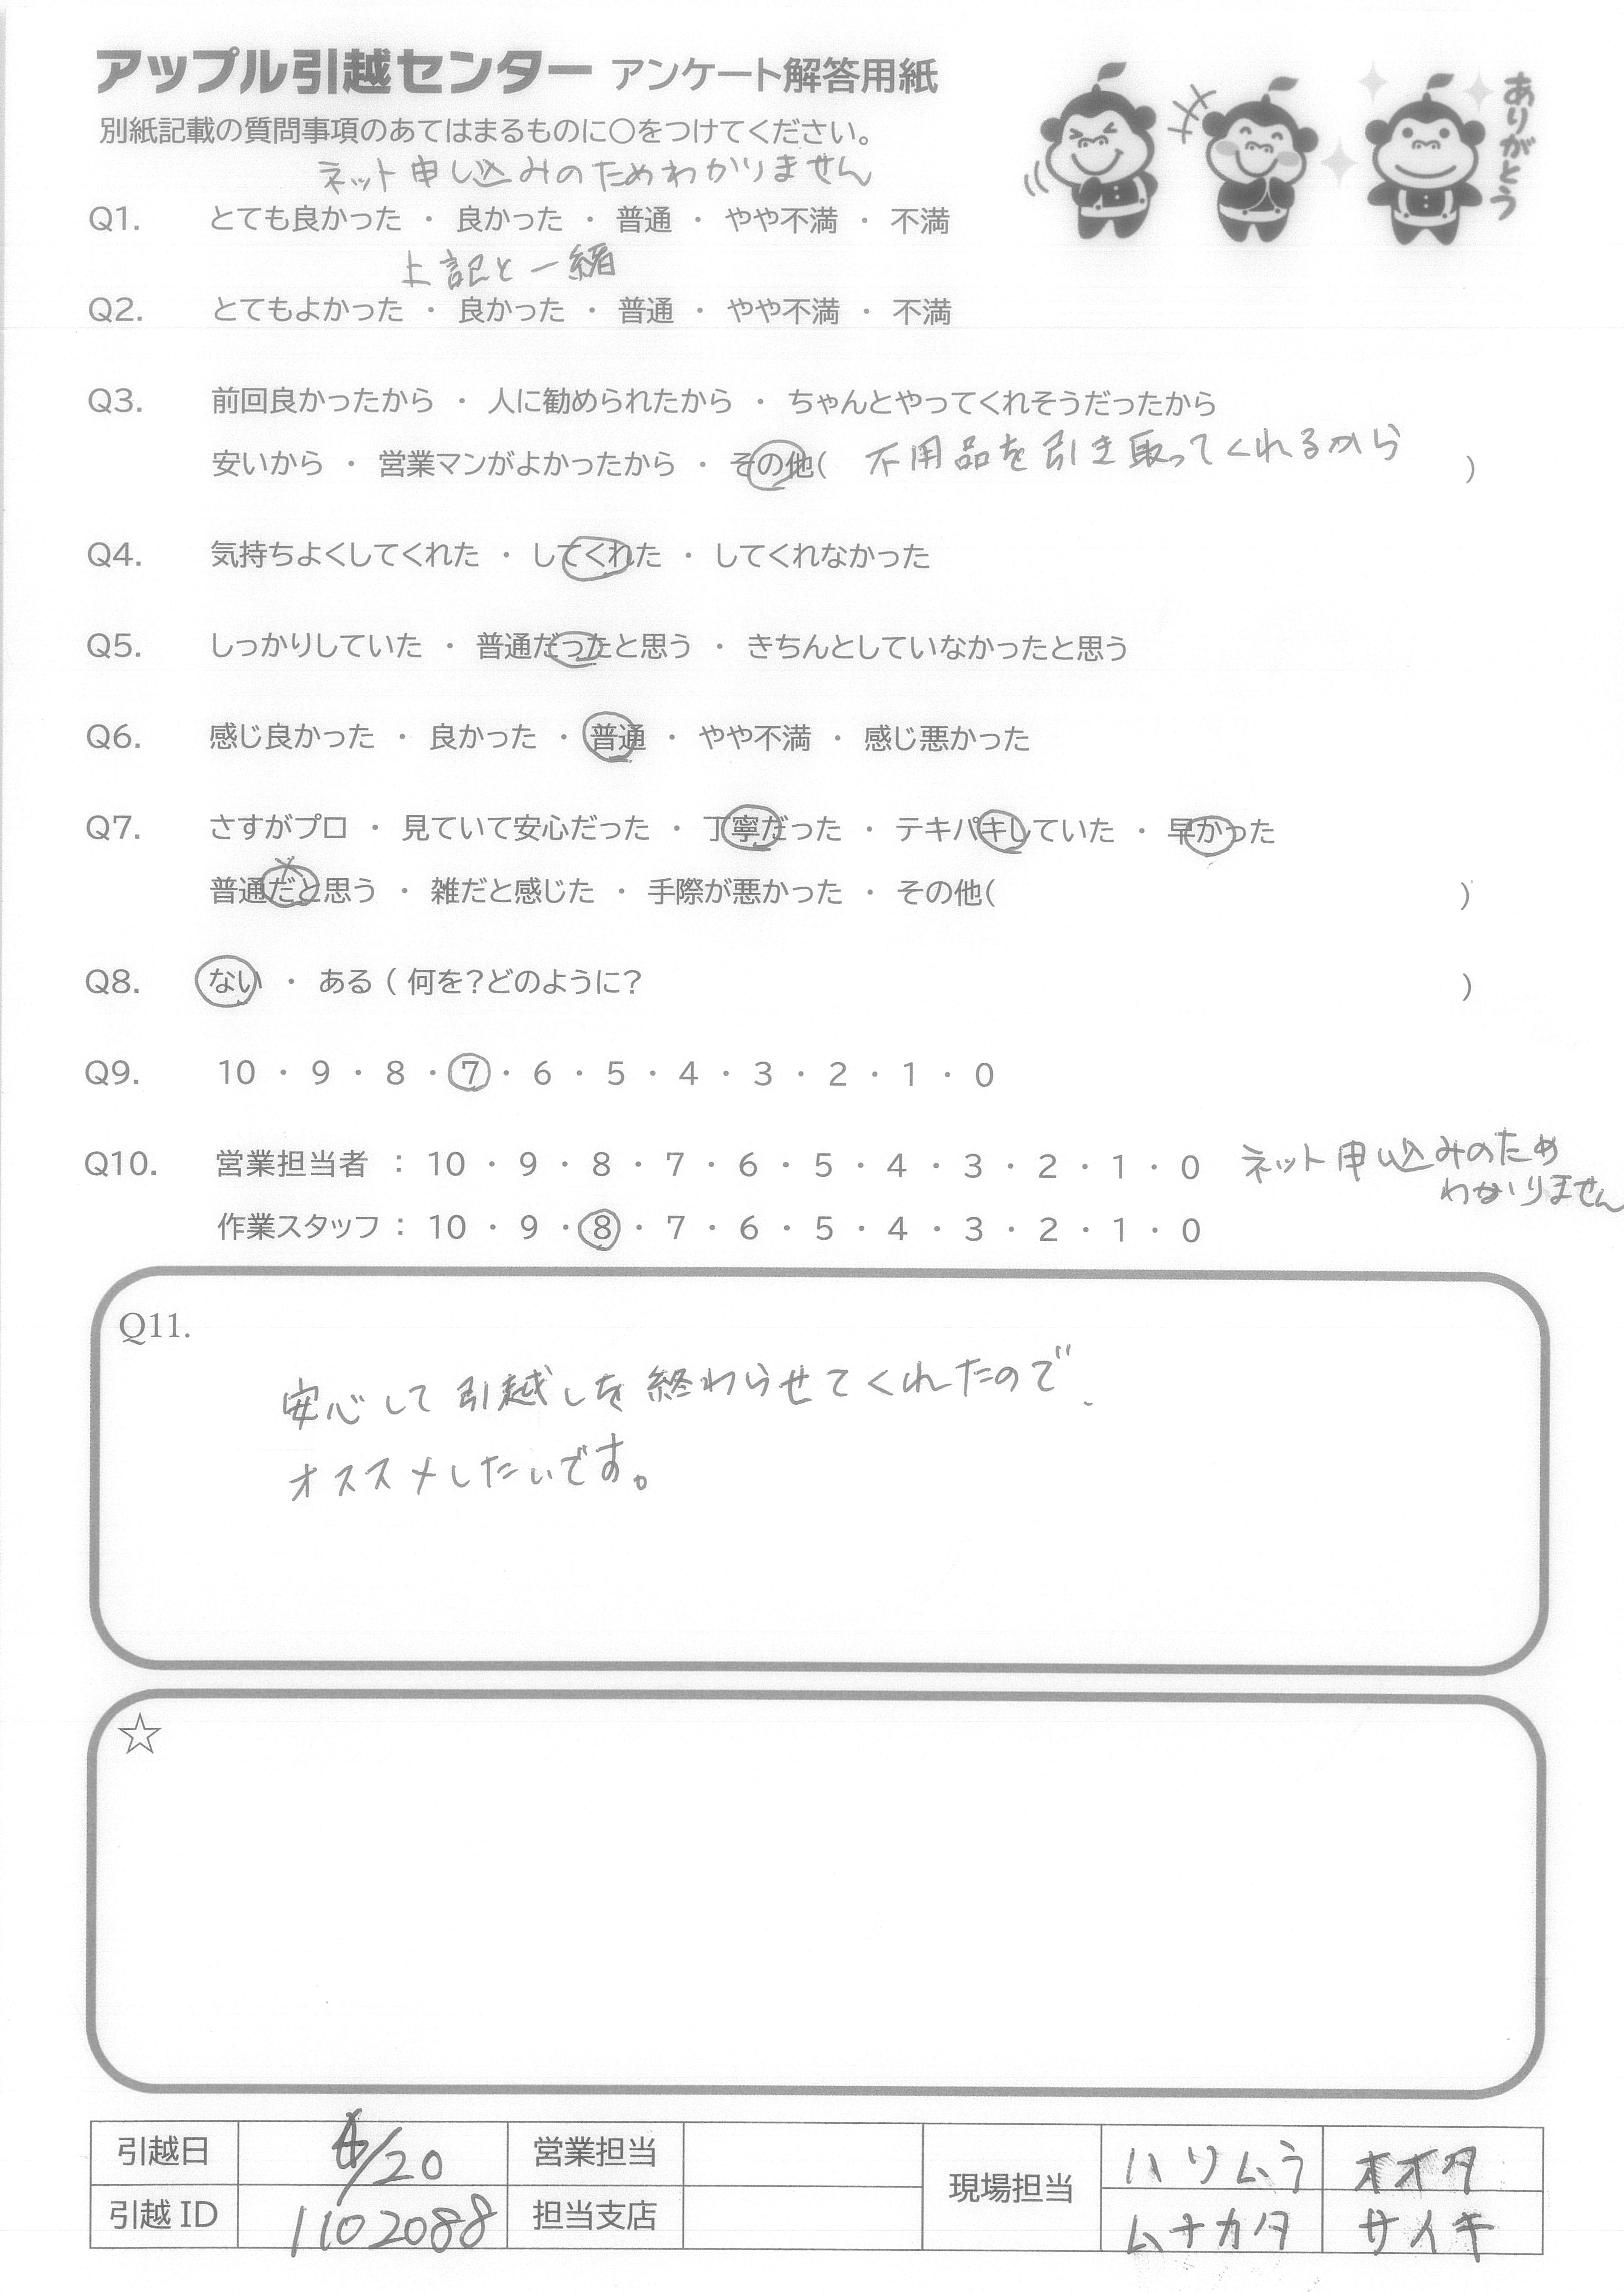 アップル引越センター アンケート解答用紙
別紙記載の質問事項のあてはまるものに〇をつけてください。
ありがとう
ネット申し込みのためわかりません
Q1. とても良かった ・ 良かった ・ 普通 ・ やや不満 ・ 不満
上記と一緒
Q2. とてもよかった ・ 良かった ・ 普通 ・ やや不満 ・ 不満
Q3. 前回良かったから ・ 人に勧められたから ・ ちゃんとやってくれそうだったから
安いから ・ 営業マンがよかったから ・ その他( 不用品を引き取ってくれるから )
Q4. 気持ちよくしてくれた ・ してくれた ・ してくれなかった
Q5. しっかりしていた ・ 普通だったと思う ・ きちんとしていなかったと思う
Q6. 感じ良かった ・ 良かった ・ 普通 ・ やや不満 ・ 感じ悪かった
Q7. さすがプロ ・ 見ていて安心だった ・ 丁寧だった ・ テキパキしていた ・ 早かった
普通だと思う ・ 雑だと感じた ・ 手際が悪かった ・ その他( )
Q8. ない ・ ある ( 何を?どのように? )
Q9. 10 ・ 9 ・ 8 ・ 7 ・ 6 ・ 5 ・ 4 ・ 3 ・ 2 ・ 1 ・ 0
Q10. 営業担当者 : 10 ・ 9 ・ 8 ・ 7 ・ 6 ・ 5 ・ 4 ・ 3 ・ 2 ・ 1 ・ 0 ネット申し込みのため
わかりません
作業スタッフ : 10 ・ 9 ・ 8 ・ 7 ・ 6 ・ 5 ・ 4 ・ 3 ・ 2 ・ 1 ・ 0
Q11.
安心して引越しを終わらせてくれたので、
オススメしたいです。
☆
引越日 /20 営業担当 現場担当 ハリムラ オオタ
引越ID 1102088 担当支店 ムナカタ サイキ